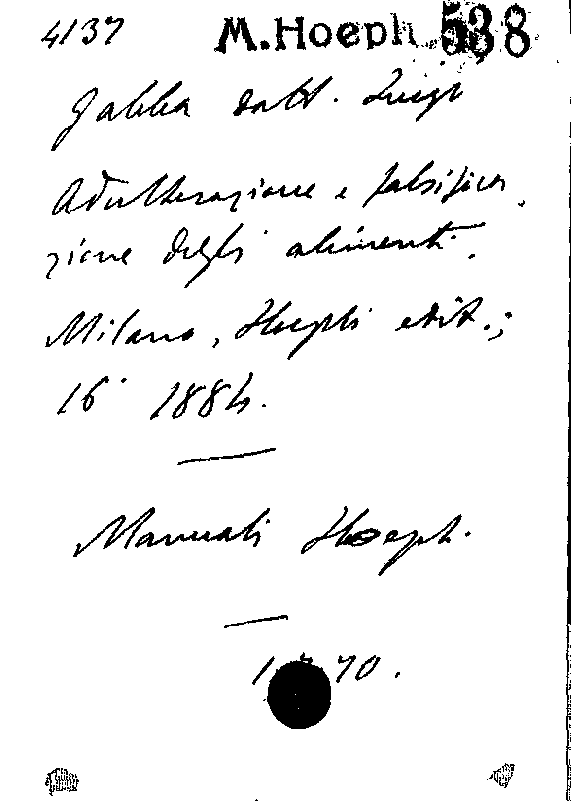 4137 M. Hoepli 538
Gabba dott. Luigi
Adulterazione e falsifica
zione degli alimenti.
Milano, Hoepli edit.;
16° 1884.
Manuali Hoepli.
70.